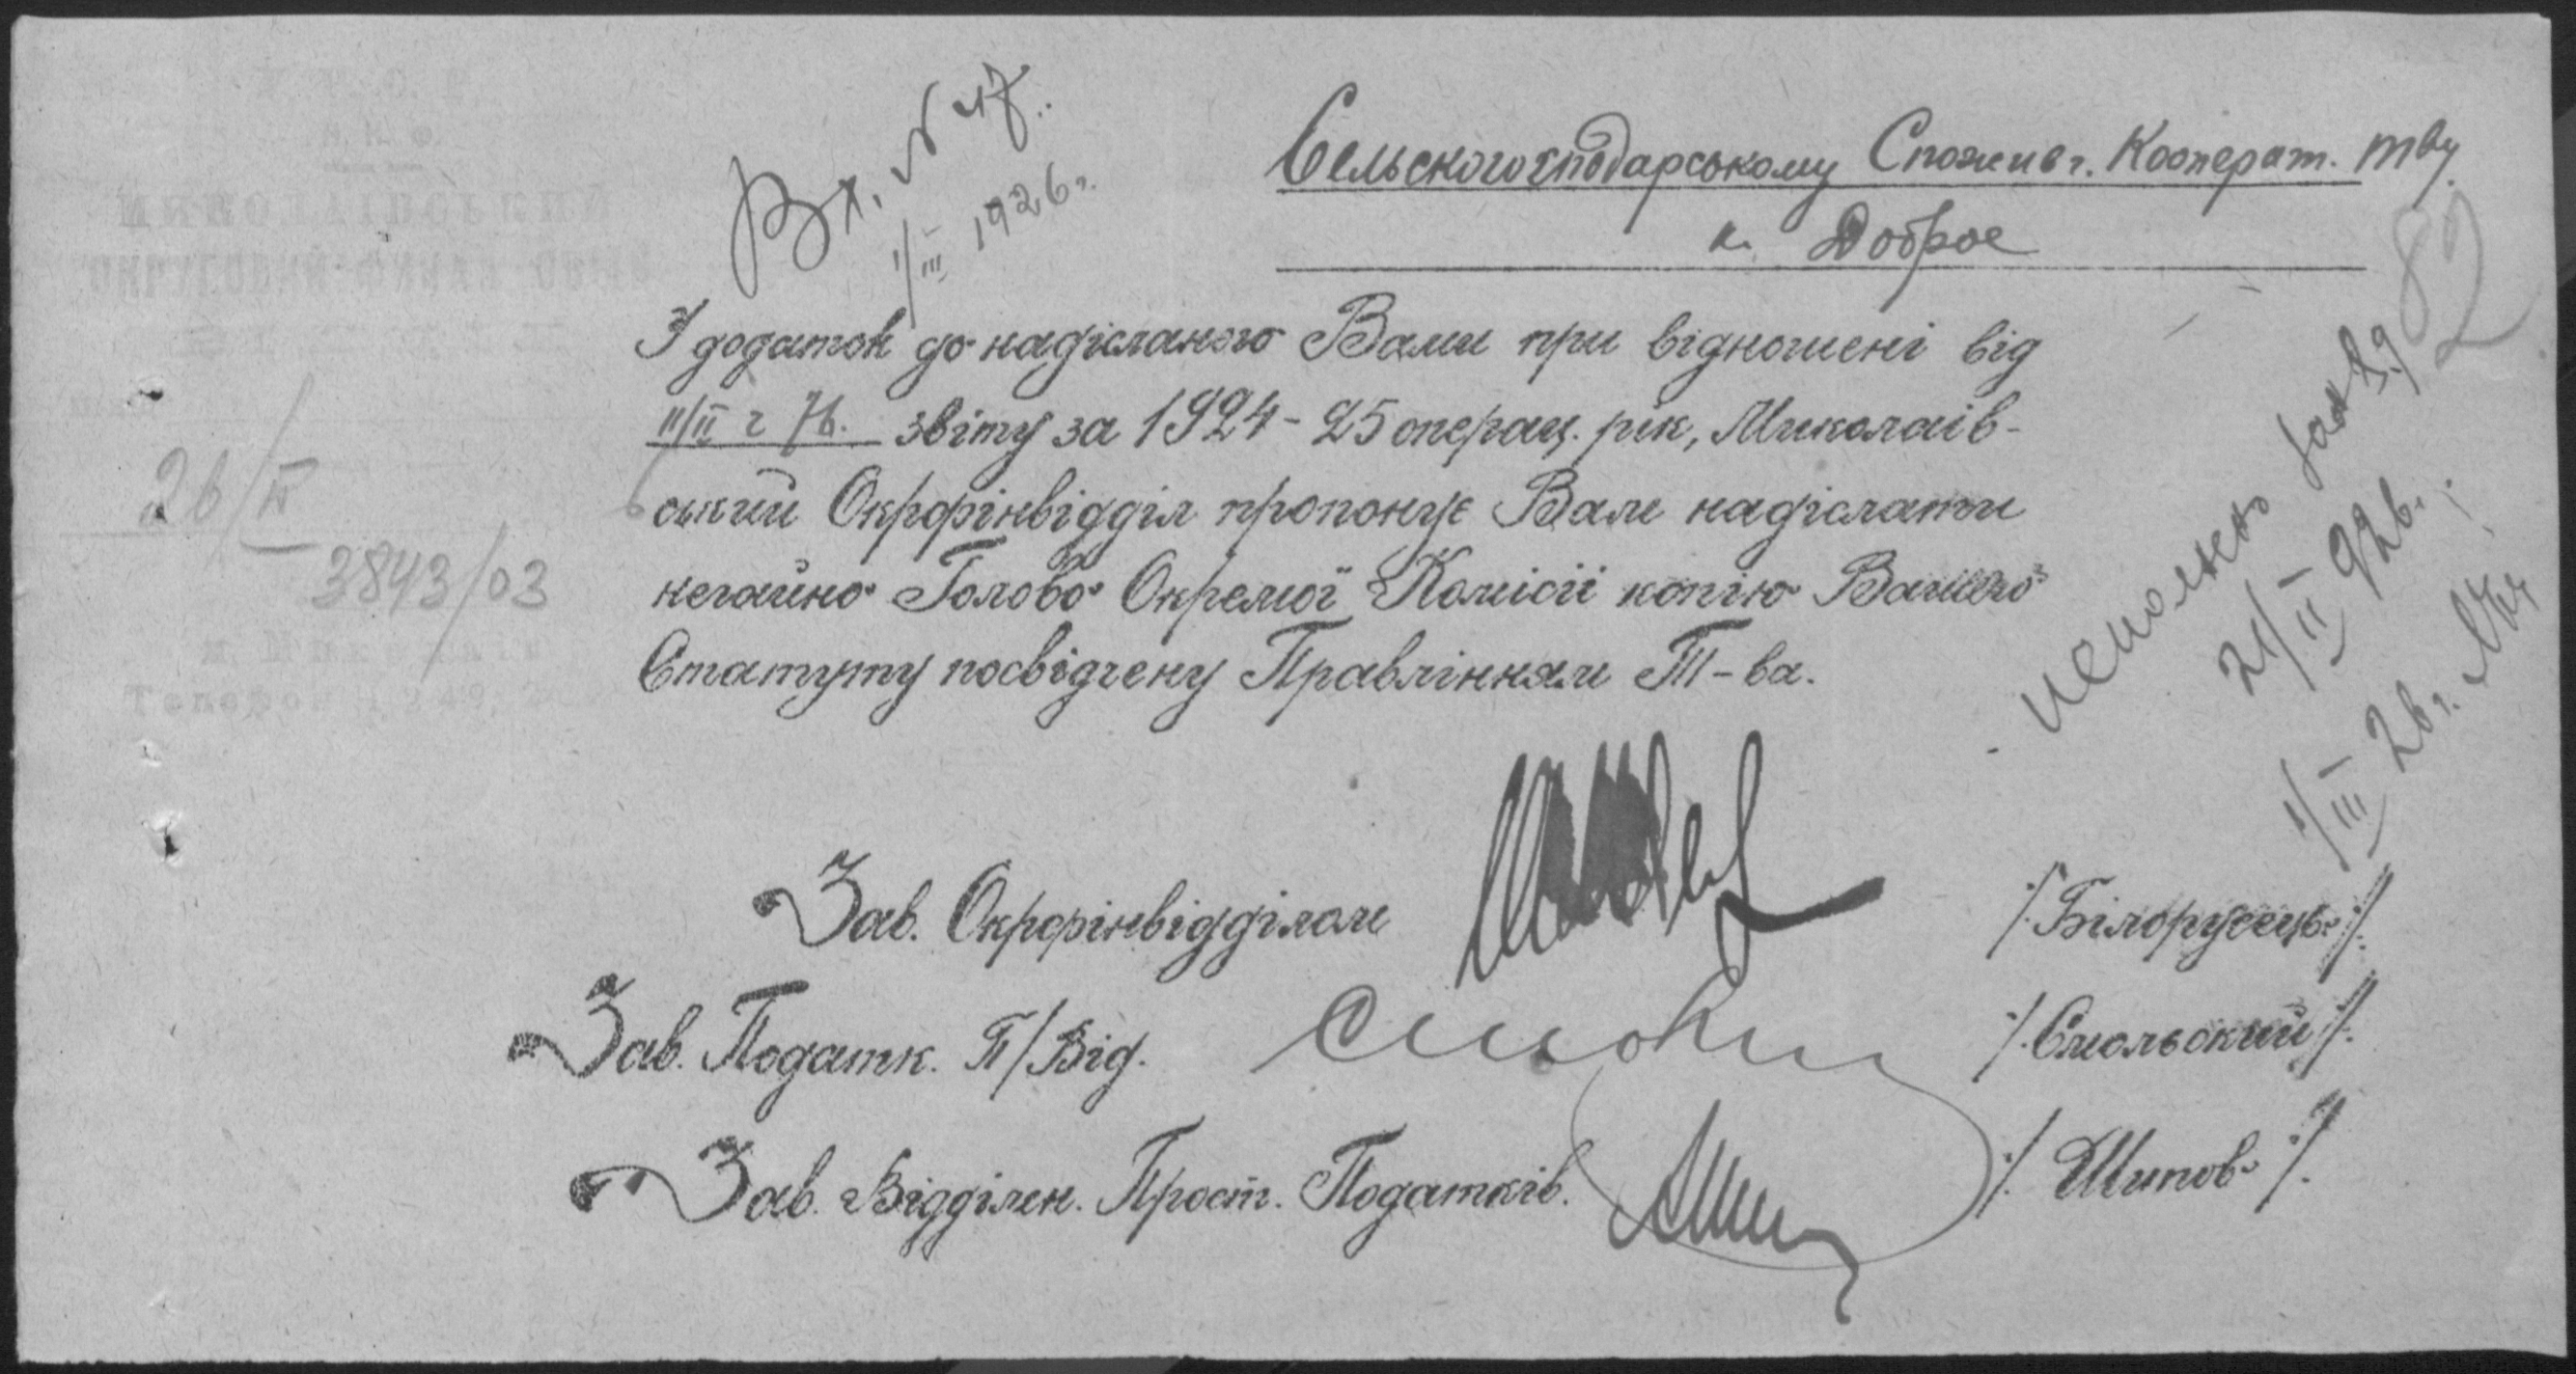 У.С.Р.Р.
Н.К.Ф.
МИКОЛАЇВСЬКИЙ
ОКРУГОВИЙ ФІНАН. ОВИЙ
26/II
3843/03
м. Микола їв
Телефон 4, 249,
Вх. № 47.
1/III 1926 г.
Сельскогосподарському Спожив г. Кооперат. тву
к. Доброе
82
У додаток до надісланого Вами при відношені від
11/II г 76. звіту за 1924-25 операц. рік, Миколаїв-
ський Окрфінвідділ пропонує Вам надіслати
негайно Голово Окремої Комісії копію Вашего
Статуту посвідчену Правлінням Т-ва.
исполнено
21/II 926.
1/III 26 г.
Зав. Окрфінвідділом /Білорусець/.
Зав. Податк. П/Від. /.Смольський/.
Зав. Відділен. Прост. Податків. /. Шипов /.